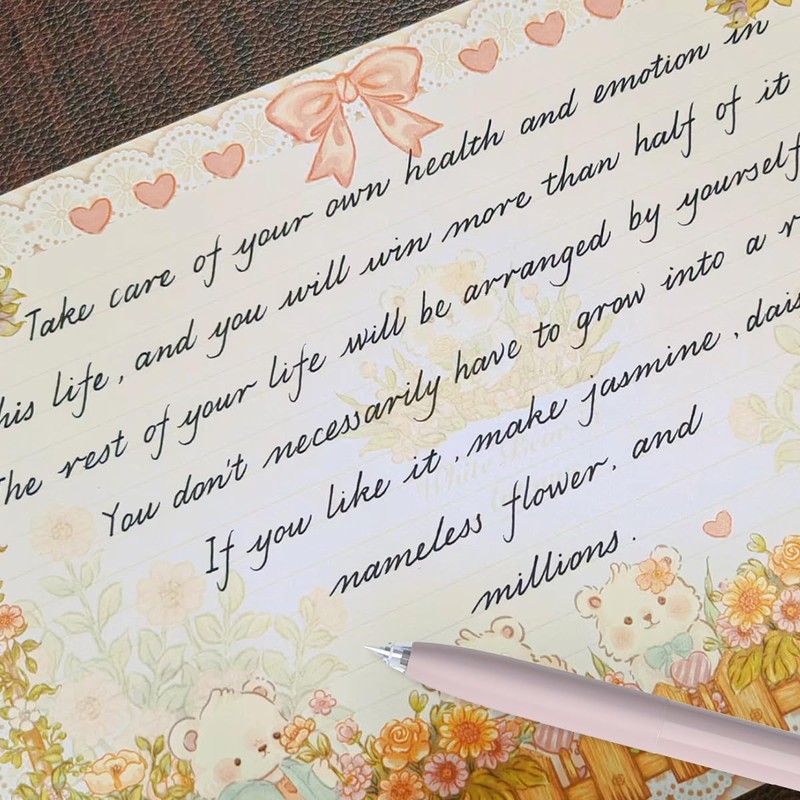 Take care of your own health and emotion in
his life, and you will win more than half of it
The rest of your life will be arranged by yourself
You don't necessarily have to grow into a
If you like it, make jasmine, dais
nameless flower, and
millions.
White Bear